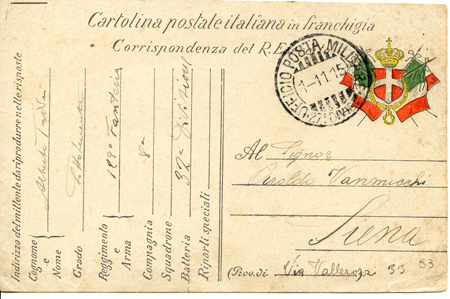 Cartolina postale italiana in franchigia
Corrispondenza del R. E
UFFICIO POSTA MILIT
1-11.15
Al Signor
Vannucchi
Siena
(Prov. di Via Vallerozzi 33 33
Indirizzo del mittente da riprodurre nelle risposte
Cognome e Nome Alberto
Grado
Reggimento e Arma 128° Fanteria
Compagnia 8a
Squadrone
Batteria 32a Divisione
Riparti speciali